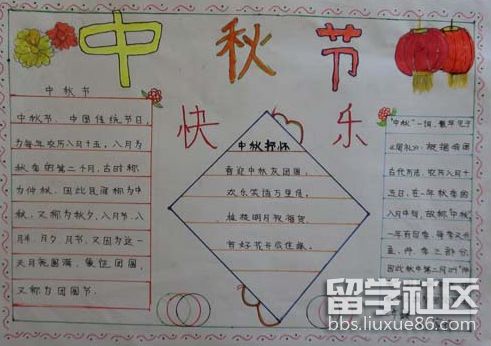 中秋节
快乐
中秋节
中秋节、中国传统节日,
为每年农历八月十五,八月为
秋季的第二个月,古时称
为仲秋、因此民间称为中
秋、又称为秋夕、八月节、八
月半、月夕、月节,又因为这一
天月亮圆满、象征团圆,
又称为团圆节。
中秋抒怀
喜迎中秋友团圆,
欢乐笑语万里传,
桂枝明月
首好
"中秋"一词,最早见于
《周礼》。根据我国
古代历法,农历八月十
五日,在一年秋季的
八月中旬,故称"中秋"
一年有四季,每季又分
孟、仲、季三部分,
因此秋中第二月叫"仲
留学社区
bbs.liuxue86.com